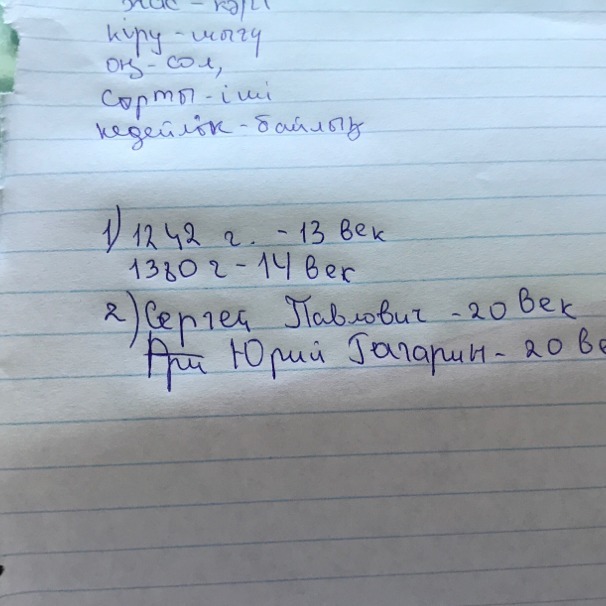 жас - кәрі
кіру - шығу
оң - сол,
сырты - іші
кедейлік - байлық
1) 1242 г. - 13 век
1380 г - 14 век
2) Сергей Павлович - 20 век
Ари Юрий Гагарин - 20 ве